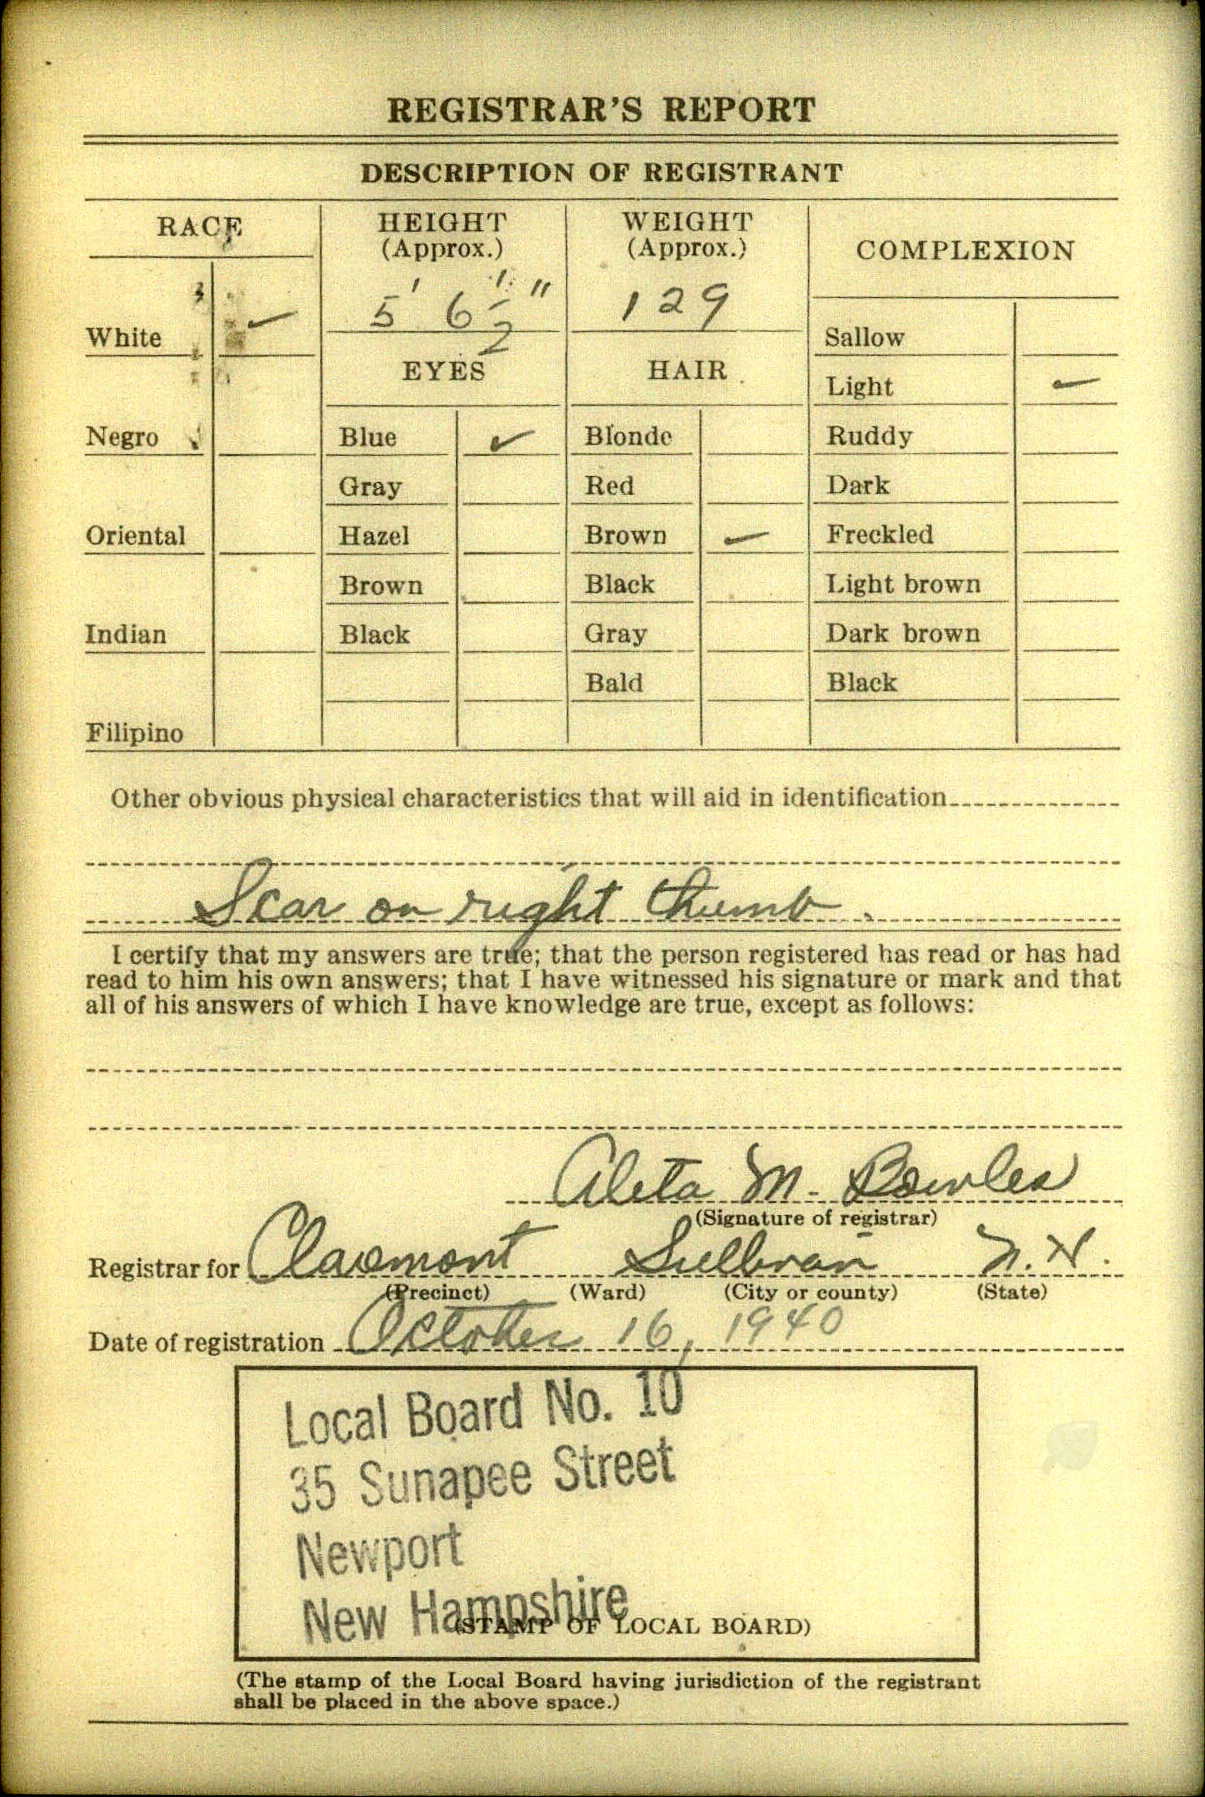 REGISTRAR'S REPORT
DESCRIPTION OF REGISTRANT
RACE
HEIGHT
(Approx.)
WEIGHT
(Approx.)
COMPLEXION
5' 6 1/2"
129
White ✓
EYES
HAIR
Sallow
Light ✓
Negro
Blue ✓
Blonde
Ruddy
Gray
Red
Dark
Oriental
Hazel
Brown ✓
Freckled
Brown
Black
Light brown
Indian
Black
Gray
Dark brown
Bald
Black
Filipino
Other obvious physical characteristics that will aid in identification
Scar on right thumb.
I certify that my answers are true; that the person registered has read or has had
read to him his own answers; that I have witnessed his signature or mark and that
all of his answers of which I have knowledge are true, except as follows:
Aleta M. Bowles
(Signature of registrar)
Registrar for Claremont Sullivan N.H.
(Precinct) (Ward) (City or county) (State)
Date of registration October 16, 1940
Local Board No. 10
35 Sunapee Street
Newport
New Hampshire
(STAMP OF LOCAL BOARD)
(The stamp of the Local Board having jurisdiction of the registrant
shall be placed in the above space.)